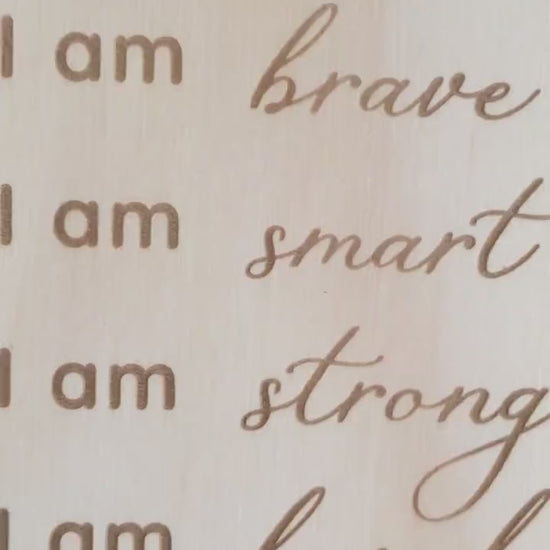 I am brave
I am smart
I am strong
I am